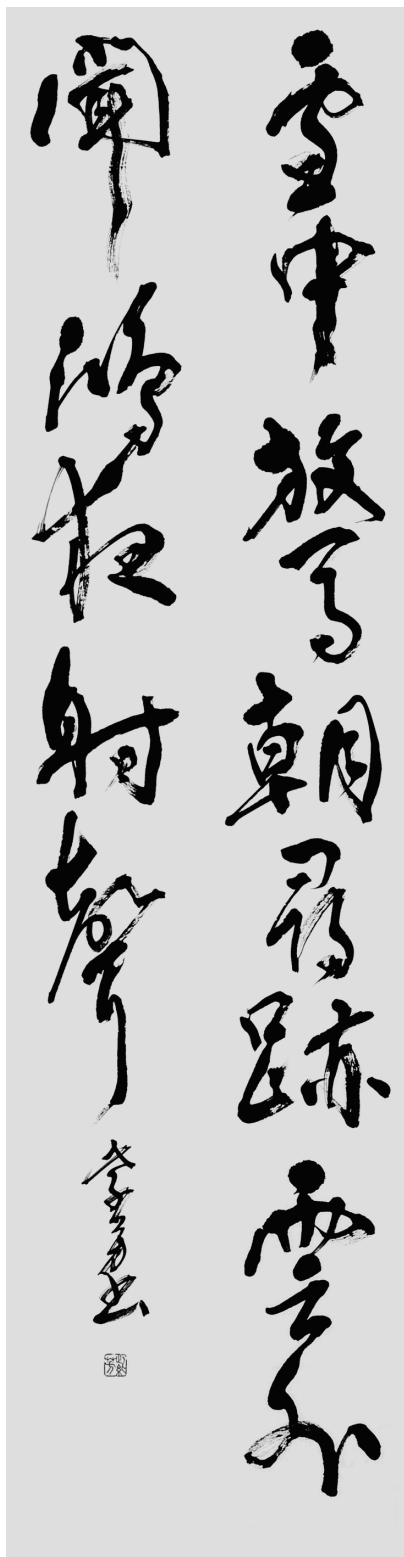 雪中放馬朝尋跡雲外
聞鴻夜射聲